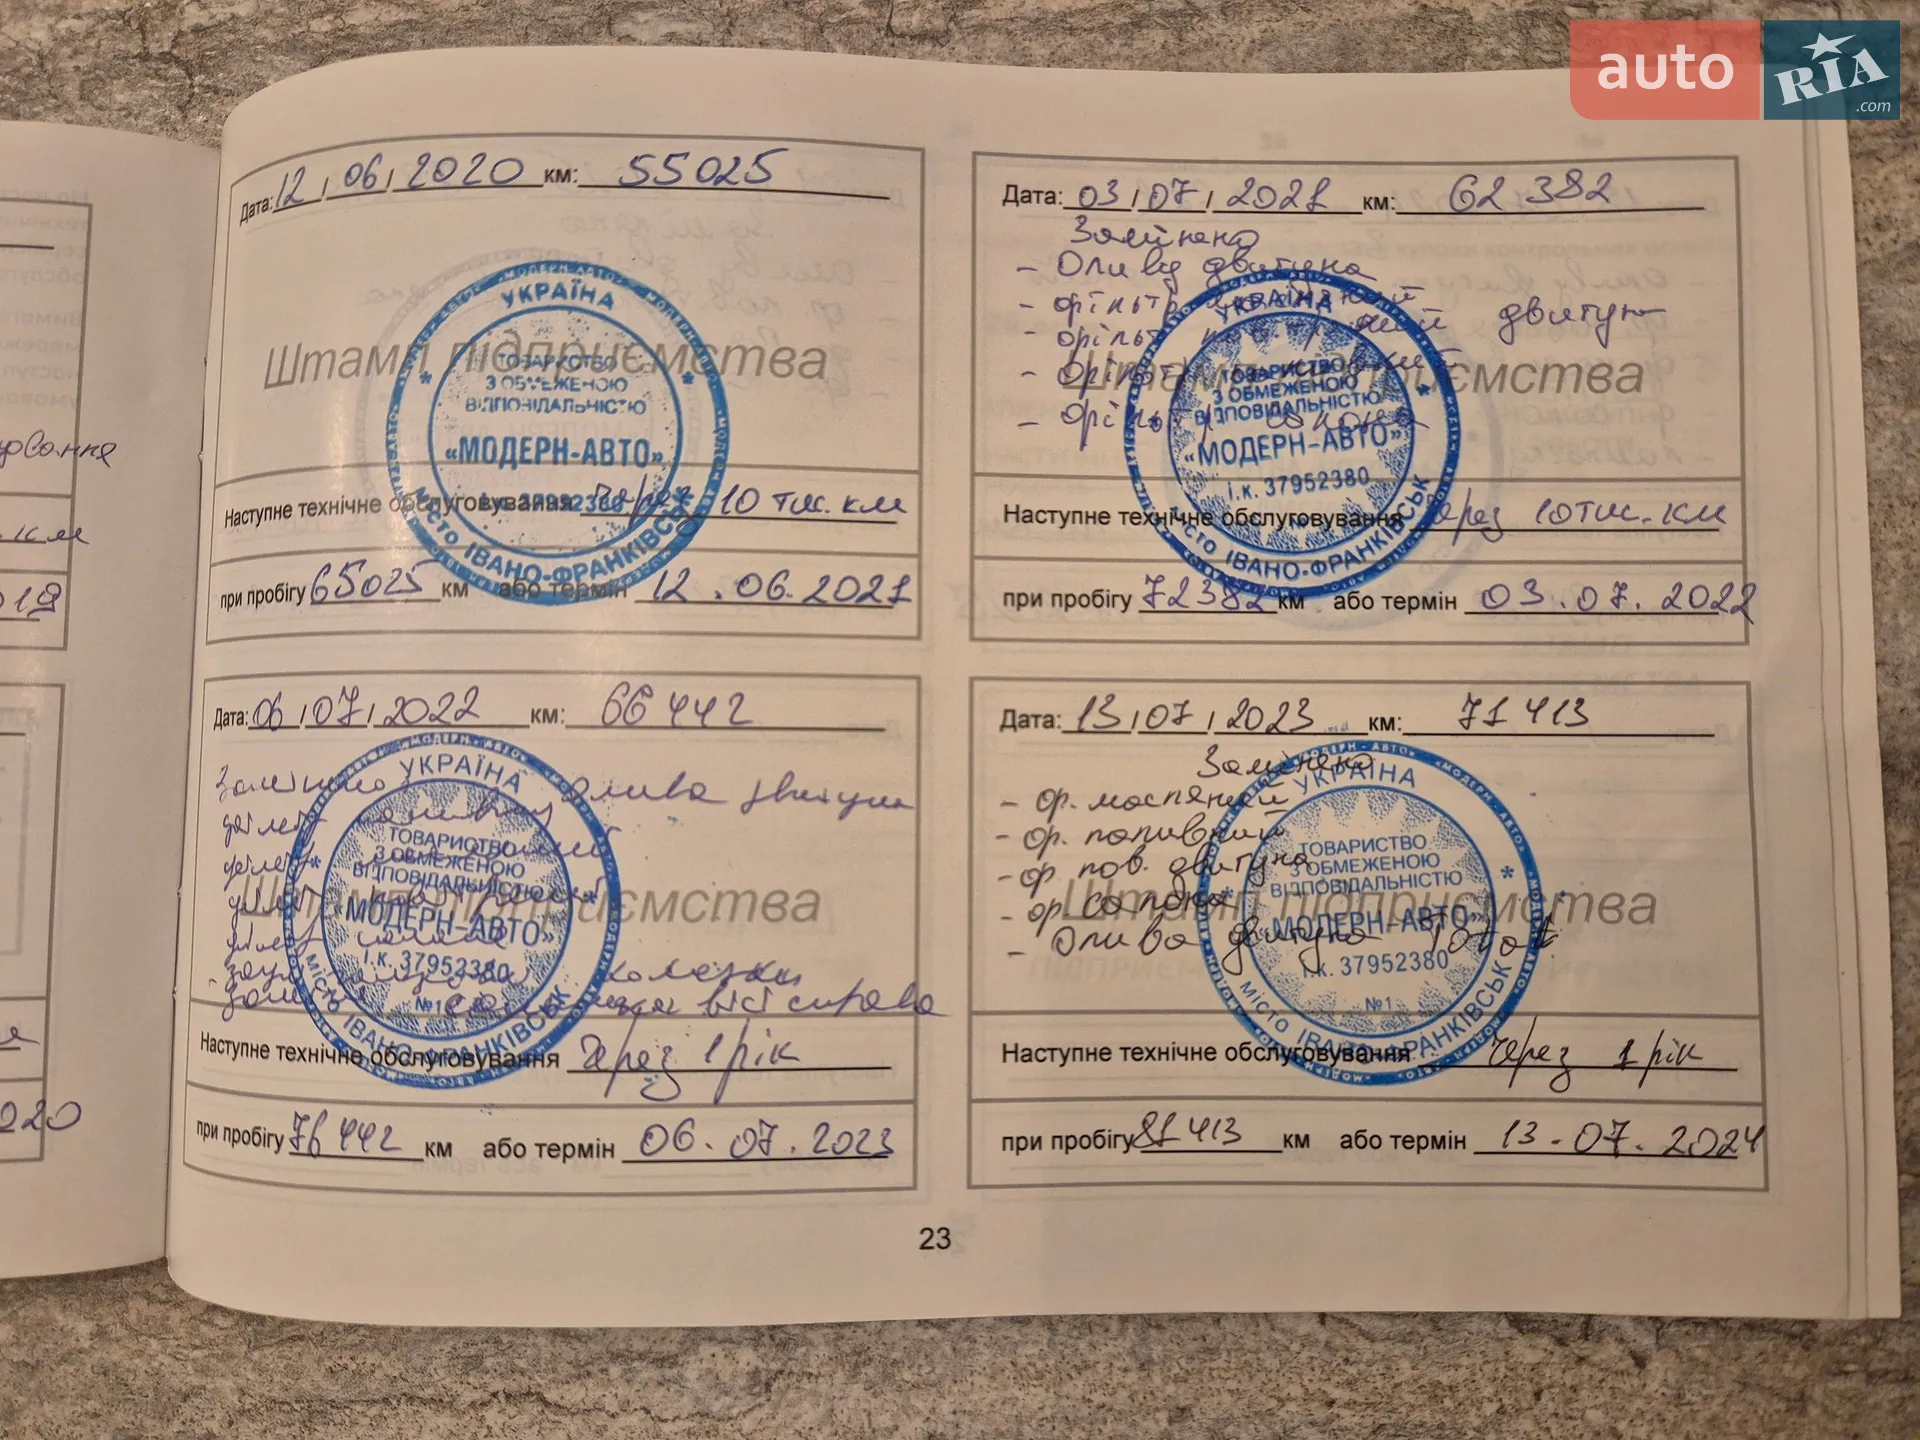 auto RIA.com
Дата: 12 / 06 / 2020 км: 55025
Штамп підприємства
УКРАЇНА
ТОВАРИСТВО
З ОБМЕЖЕНОЮ
ВІДПОВІДАЛЬНІСТЮ
«МОДЕРН-АВТО»
37952380
місто ІВАНО-ФРАНКІВСЬК
Наступне технічне обслуговування через 10 тис. км
при пробігу 65025 км або термін 12.06.2021
Дата: 03 / 07 / 2021 км: 62 382
Замінено
- Оливу двигуна
- фільтр
- фільтр двигун
- фільтр
- фільтр салона
Штамп підприємства
УКРАЇНА
ТОВАРИСТВО
З ОБМЕЖЕНОЮ
ВІДПОВІДАЛЬНІСТЮ
«МОДЕРН-АВТО»
і.к. 37952380
місто ІВАНО-ФРАНКІВСЬК
Наступне технічне обслуговування через 10 тис. км
при пробігу 72382 км або термін 03.07.2022
Дата: 06 / 07 / 2022 км: 66 442
олива двигуна
Штамп підприємства
УКРАЇНА
ТОВАРИСТВО
З ОБМЕЖЕНОЮ
ВІДПОВІДАЛЬНІСТЮ
«МОДЕРН-АВТО»
і.к. 37952380
№1
місто ІВАНО-ФРАНКІВСЬК
колодки
справа
Наступне технічне обслуговування через 1 рік
при пробігу 76 442 км або термін 06.07.2023
Дата: 13 / 07 / 2023 км: 71 413
Замінено
- ф. масляний
- ф. паливний
- ф. пов. двигуна
- ф. салона
- Олива двигуна Total
Штамп підприємства
УКРАЇНА
ТОВАРИСТВО
З ОБМЕЖЕНОЮ
ВІДПОВІДАЛЬНІСТЮ
«МОДЕРН-АВТО»
і.к. 37952380
№1
місто ІВАНО-ФРАНКІВСЬК
Наступне технічне обслуговування через 1 рік
при пробігу 81 413 км або термін 13.07.2024
23